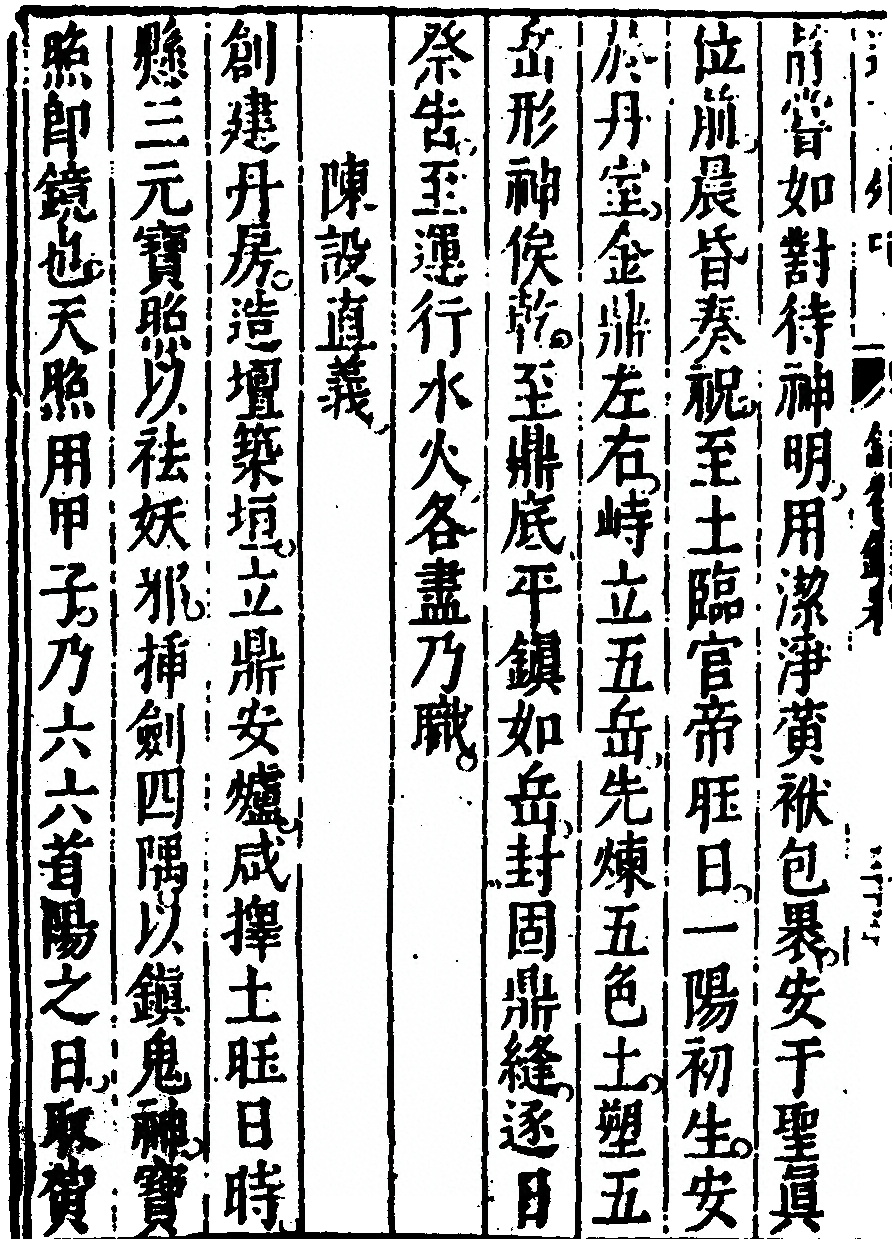 嘗如對待神明用潔淨黃袱包裹安于聖眞
位前晨昏奏祝至土臨官帝旺日一陽初生安
於丹室金鼎左右峙立五岳先煉五色土塑五
岳形神俟乾至鼎底平鎭如岳封固鼎縫逐日
祭告至運行水火各盡乃職
陳設直義
創建丹房造壇築垣立鼎安爐咸擇土旺日時
懸三元寶照以祛妖邪揷劍四隅以鎭鬼神寶
照即鏡也天照用甲子乃六六首陽之日取黃